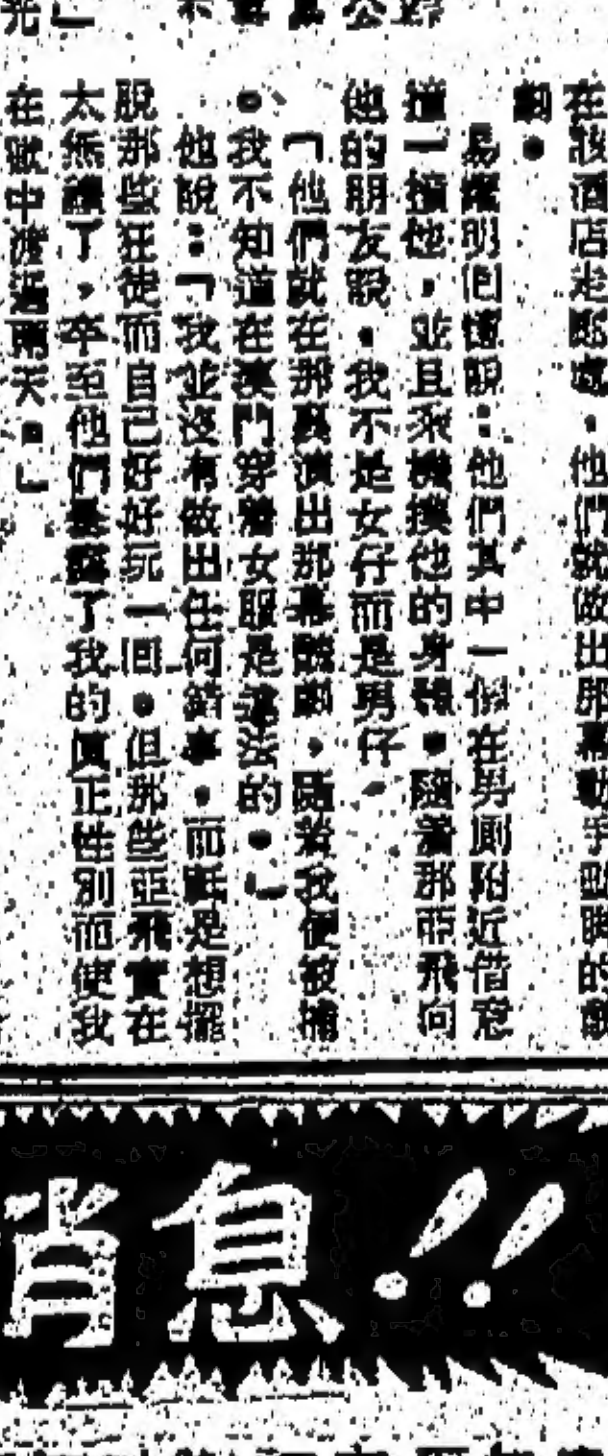 在該酒店走廊處，他們就做出那幕動手動脚的戲
劇。
易繼明回憶說：他們其中一個在男廁附近借意
撞一撞他，並且乘機摸他的身體。隨着那亞飛向
他的朋友說，我不是女仔而是男仔，
「他們就在那裏演出那幕戲劇，隨着我便被捕
。我不知道在澳門穿着女服是違法的。」
他說：「我並沒有做出任何錯事，而祇是想擺
脫那些狂徒而自己好好玩一回。但那些亞飛實在
太無禮了，卒至他們暴露了我的真正性別而使我
在獄中渡過兩天。」
消息！！